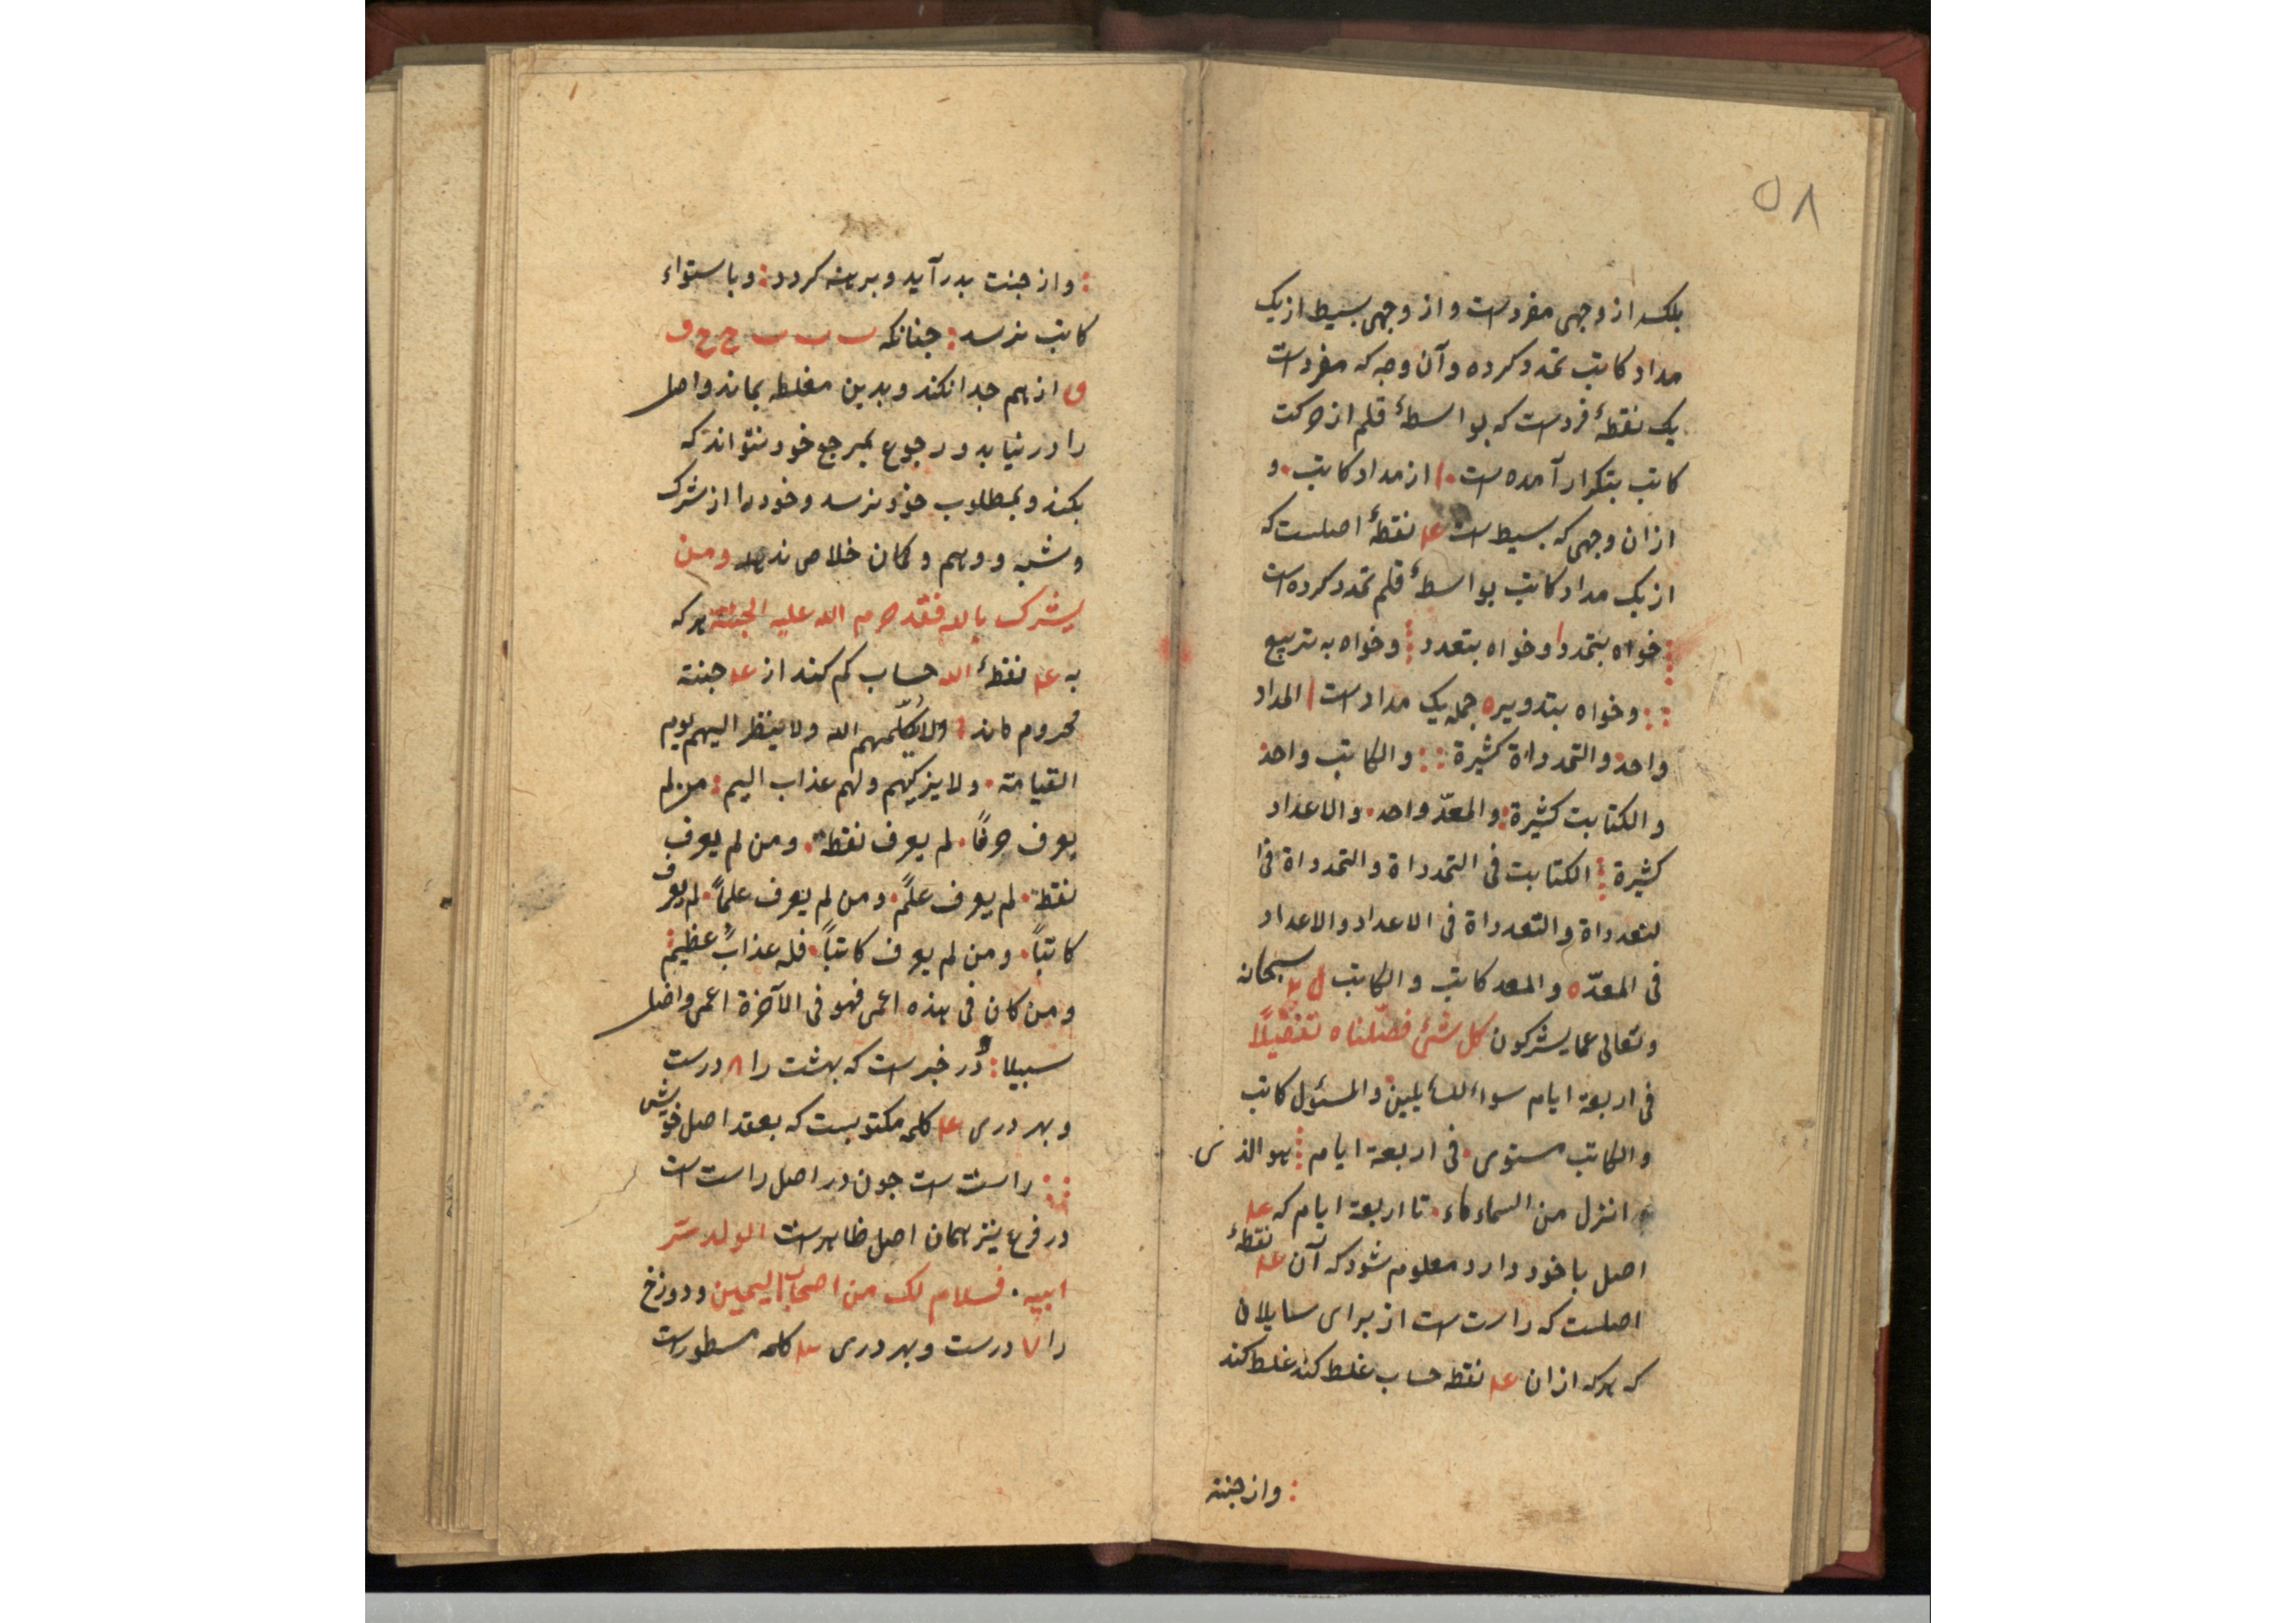 ٥٨
بلکه از وجهی مفردست و از وجهی بسیط از یک
مداد کاتب تمدد کرده و آن وجه که مفردست
یک نقطهٔ فردست که بواسطهٔ قلم از حرکت
کاتب بتکرار آمده است ا از مداد کاتب و
ازان وجهی که بسیط است نقطهٔ اصلست که
از یک مداد کاتب بواسطهٔ قلم تمدد کرده است
خواه بتمدد و خواه بتعدد و خواه به تربیع
و خواه بتدویر ه جمله یک مدادست ا المداد
واحد والتمدداة کثیرة والکاتب واحد
والکتابت کثیرة والمعدّ واحد والاعداد
کثیرة الکتابت فی التمدداة والتمدداة فی ا
لتعدداة والتعدداة فی الاعداد والاعداد
فی المعدّ ه والمعد کاتب والکاتب سبحانه
وتعالی عما یشرکون کل شیٔ فصّلناه تفصیلاً
فی اربعة ایام سواء للسایلین والمسئول کاتب
والکاتب مستوی فی اربعة ایام هو الذی
انزل من السماء ماء تا اربعة ایام که
اصل با خود دارد معلوم شود که آن نقطهٔ
اصلست که راست است از برای سایلان
که هرکه ازان نقطه حساب غلط کند غلط کند
و از جنت
و از جنت بدر آید و برهنه کردد و باستواء
کاتب نرسد جنانکه ب ب ب ج ح ف
ق از هم جدا نکند و بدین مغلطه بماند و اصل
را در نیابد و رجوع بمرجع خود نتواند که
بکند و بمطلوب خود نرسد و خود را از شرک
و شبه و وهم و کمان خلاص ندهد ومن
یشرک بالله فقد حرم الله علیه الجنة هرکه
به نقطهٔ الله حساب کم کند از جنت
محروم ماند ولا یکلّمهم الله ولا ینظر الیهم یوم
القیامة ولا یزکیهم ولهم عذاب الیم من لم
یعرف حرفاً لم یعرف نقطة ومن لم یعرف
نقطة لم یعرف علمً ومن لم یعرف علماً لم یعرف
کاتباً ومن لم یعرف کاتباً فله عذابٌ عظیم
ومن کان فی هذه اعمی فهو فی الآخرة اعمی واضل
سبیلا و در خبرست که بهشت را ٨ درست
و بهر دری کلمه مکتوبست که بعقد اصل خویش
راست است جون در اصل راست است
در فرع نیز همان اصل ظاهرست الولد سرّ
ابیه فسلام لک من اصحاب الیمین و دوزخ
را ٧ درست و بهر دری کلمه مسطورست